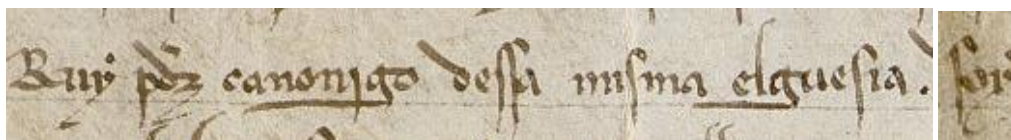 Ruy pźez canonigo dessa misma elguesia.